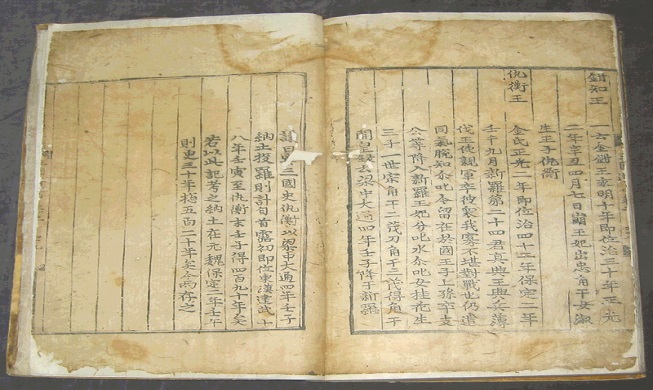 鉗知王
一云金鉗王永明十年即位治三十年正光
二年辛丑四月七日崩王妃出忠角干女淑
生王子仇衡
仇衡王
金氏正光二年即位治四十二年保定二年
壬午九月新羅第二十四君真興王興兵薄
伐王使親軍卒彼衆我寡不堪對戰也仍遣
同氣脫知尒叱今留在於國王子上孫卒支
公等降入新羅王妃分叱水尒叱女桂花生
三子一世宗角干二茂刀角干三茂得角干
開皇錄云梁中大通四年壬子降于新羅
議曰案三國史仇衡以梁中大通四年壬子
納土投羅則計自首露初即位東漢建武十
八年壬寅至仇衡末壬子得四百九十年矣
若以此記考之納土在元魏保定二年壬午
則更三十年総五百二十年矣今兩存之